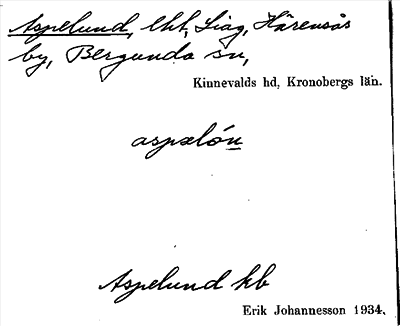 Aspelund, lht, Liag, Härensås
by, Bergunda sn,
Kinnevalds hd, Kronobergs län.
aspəlón
Aspelund kb
Erik Johannesson 1934.